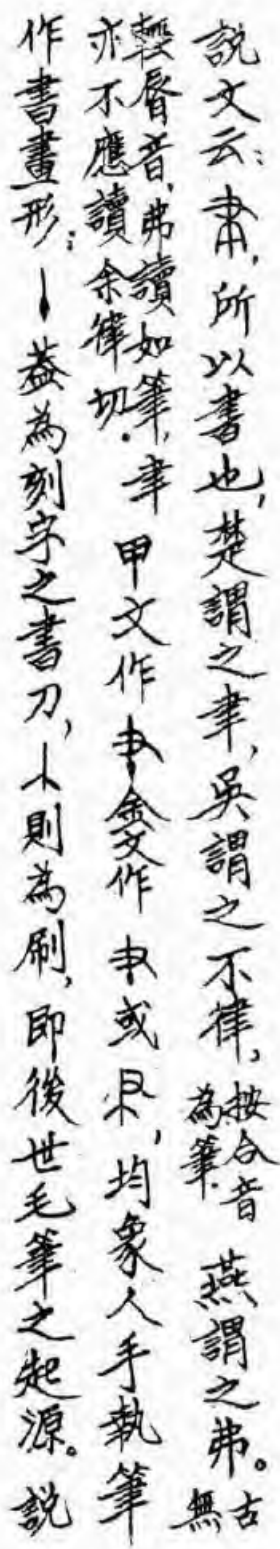 說文云：聿，所以書也，楚謂之聿，吳謂之不律，按合音為筆．燕謂之弗。古無
輕脣音，弗讀如筆，亦不應讀余律切．聿甲文作金文作或，均象人手執筆
作書畫形；丨葢為刻字之書刀，則為刷，即後世毛筆之起源。說